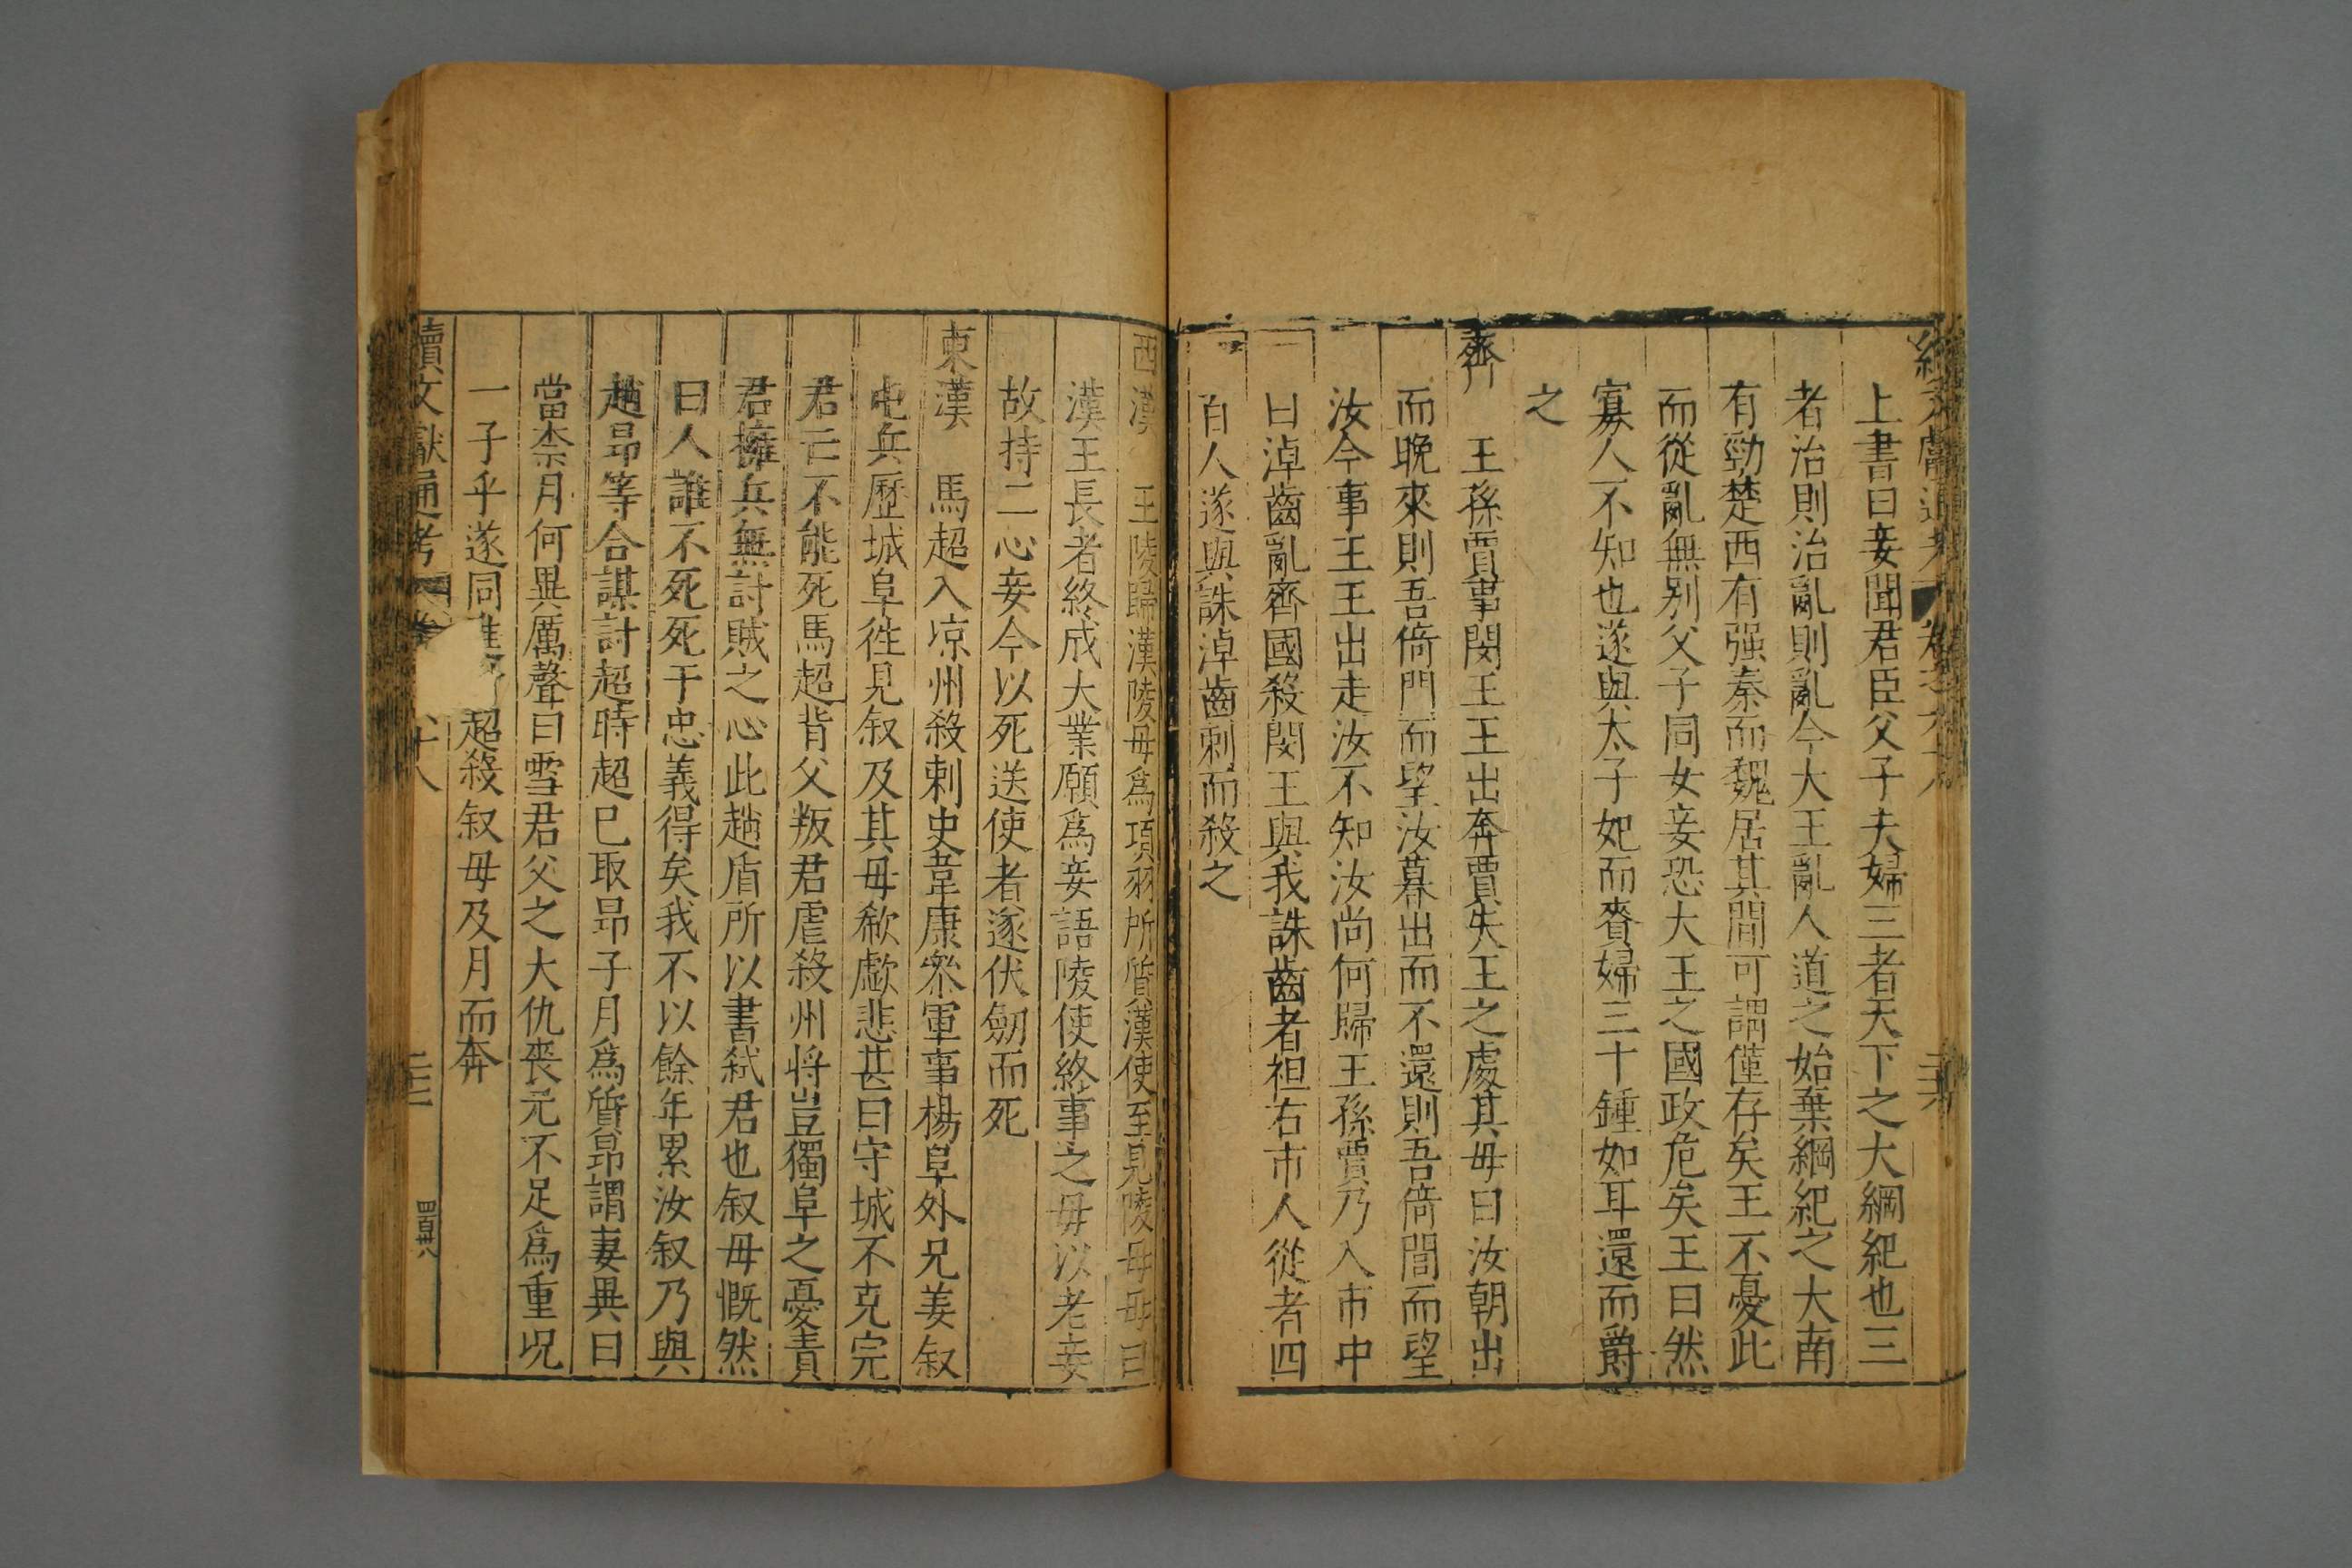 上書曰妾聞君臣父子夫婦三者天下之大綱紀也三
者治則治亂則亂今大王亂人道之始棄綱紀之大南
有勁楚西有强秦而魏居其間可謂僅存矣王不憂此
而從亂無别父子同女妾恐大王之國政危矣王曰然
寡人不知也遂與太子妃而賚婦三十鍾如耳還而爵
之
齊　王孫賈事閔王王出奔賈失王之處其母曰汝朝出
而晚來則吾倚門而望汝暮出而不還則吾倚閭而望
汝今事王王出走汝不知汝尚何歸王孫賈乃入市中
曰淖齒亂齊國殺閔王與我誅齒者袒右市人從者四
百人遂與誅淖齒刺而殺之
西漢　王陵歸漢陵母爲項羽所質漢使至見陵母母曰
漢王長者終成大業願爲妾語陵使終事之毋以老妾
故持二心妾今以死送使者遂伏劒而死
東漢　馬超入凉州殺刺史韋康叅軍事楊阜外兄姜叙
屯兵歷城阜徃見叙及其母欷歔悲甚曰守城不克完
君亡不能死馬超背父叛君虐殺州将豈獨阜之憂責
君擁兵無討賊之心此趙盾所以書弑君也叙母慨然
曰人誰不死死于忠義得矣我不以餘年累汝叙乃與
趙昂等合謀討超時超已取昂子月爲質昂謂妻異曰
當柰月何異厲聲曰雪君父之大仇喪元不足爲重况
一子乎遂同進超殺叙母及月而奔
續文獻通考 十八 四百卅八